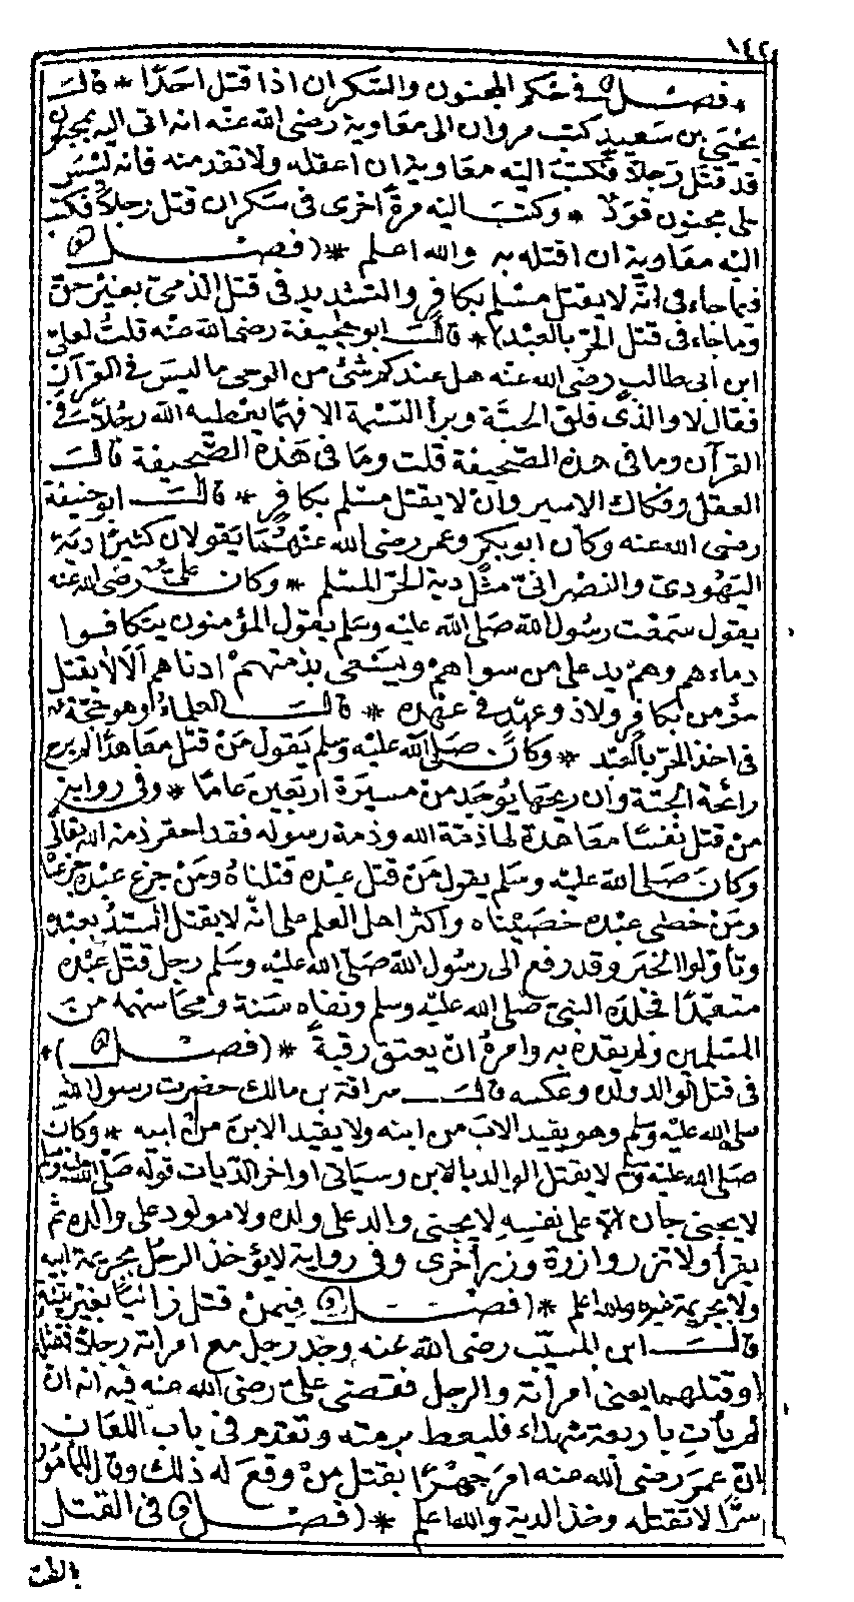 ١٤٢
* فصـــل في حكم المجنون والسكران اذا قتل احدًا * قالـــ
يحيى بن سعيد كتب مروان الى معاوية رضى الله عنه انه اتى اليه بمجنون
قد قتل رجلاً فكتب اليه معاوية ان اعقله ولا تقد منه فانه ليس
على مجنون قود * وكتب اليه مرة اخرى في سكران قتل رجلا فكتب
اليه معاوية ان اقتله به والله اعلم * (فصـــل
فيما جاء في انه لا يقتل مسلم بكافر والتشديد في قتل الذمي بغير حق
وما جاء في قتل الحر بالعبد) * قالـــ ابو جحيفة رضى الله عنه قلت لعلي
ابن ابى طالب رضى الله عنه هل عندكم شئ من الوحى ما ليس في القرآن
فقال لا والذى فلق الحبة وبرأ النسمة الا فهما يعطيه الله رجلاً في
القرآن وما في هذه الصحيفة قلت وما في هذه الصحيفة قالـــ
العقل وفكاك الاسير وان لا يقتل مسلم بكافر * قالـــ ابو حنيفة
رضى الله عنه وكان ابو بكر وعمر رضى الله عنهما يقولان كثيرًا دية
اليهودى والنصرانىّ مثل دية الحر المسلم * وكان علىّ رضى الله عنه
يقول سمعت رسول الله صلى الله عليه وسلم يقول المؤمنون يتكافوا
دماءهم وهم يد على من سواهم ويسعى بذمتهم ادناهم الا لا يقتل
مؤمن بكافر ولا ذو عهد في عهده * قالـــ العلماء وهو حجة
في اخذ الحر بالعبد * وكان صلى الله عليه وسلم يقول من قتل معاهدا لم يرح
رائحة الجنة وان ريحها يوجد من مسيرة اربعين عامًا * وفي رواية
من قتل نفسا معاهدة لها ذمة الله وذمة رسوله فقد احقر ذمة الله تعالى
وكان صلى الله عليه وسلم يقول من قتل عبده قتلناه ومن جزع عبده جزعنا
ومن خصى عبده خصيناه واكثر اهل العلم على انه لا يقتل السيد بعبده
وتأولوا الخبر وقد رفع الى رسول الله صلى الله عليه وسلم رجل قتل عبده
متعمدًا فجلده النبى صلى الله عليه وسلم ونفاه سنة ومحا سهمه من
المسلمين ولم يقده به وامره ان يعتق رقبة * (فصـــل )*
في قتل الوالد ولده وعكسه قالـــ سراقة بن مالك حضرت رسول الله
صلى الله عليه وسلم وهو يقيد الاب من ابنه ولا يقيد الابن من ابيه * وكان
صلى الله عليه وسلم لا يقتل الوالد بالابن وسيأتى اواخر الديات قوله صلى الله عليه وسلم
لا يجنى جان الا على نفسه لا يجنى والد على ولده ولا مولود على والده ثم
يقرأ ولا تزر وازرة وزر أخرى وفي رواية لا يؤخذ الرجل بجريمة ابيه
ولا بجريمة غيره والله اعلم * (فصـــل فيمن قتل زانيًا بغير بينة
قالـــ ابن المسيب رضى الله عنه وجد رجل مع امرأته رجلا فقتله
او قتلهما يعنى امرأته والرجل فقضى علىّ رضى الله عنه فيه انه ان
لم يأت باربعة شهداء فليعط برمته وتقدم في باب اللعان
ان عمر رضى الله عنه امر جهرًا بقتل من وقع له ذلك وقال للمأمور
سرًّا لا تقتله وخذ الدية والله اعلم * (فصـــل في القتل